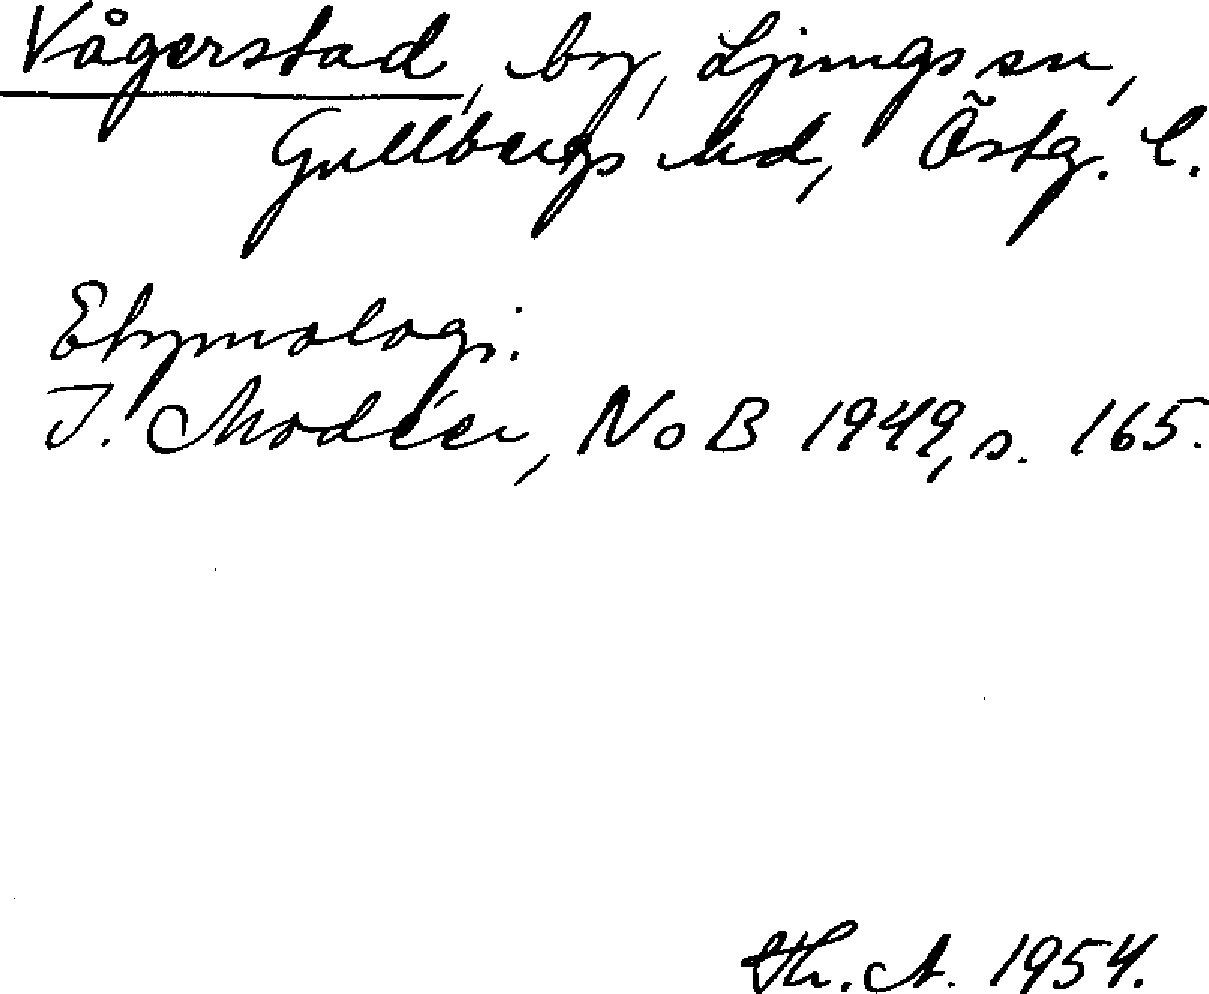 Vågerstad, by, Ljungs sn,
Gullbergs hd, Östg. l.
Etymologi.
I. Modéer, NoB 1949, s. 165.
Th. A. 1954.